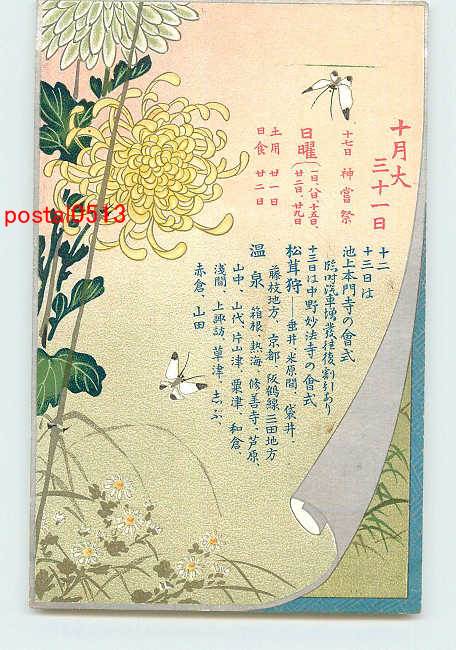 十月大
三十一日
十七日 神嘗祭
日曜(一日、八日、十五日、廿二日、廿九日
土用 廿一日
日食 廿二日
十二
十三日は
池上本門寺の會式
臨時汽車増發往復割引あり
十三日は中野妙法寺の會式
松茸狩──垂井、米原間、袋井、
藤枝地方、京都、阪鶴線三田地方
温泉 箱根、熱海、修善寺、芦原、
山中、山代、片山津、粟津、和倉、
淺間、上諏訪、草津、志ぶ、
赤倉、山田
postal0513